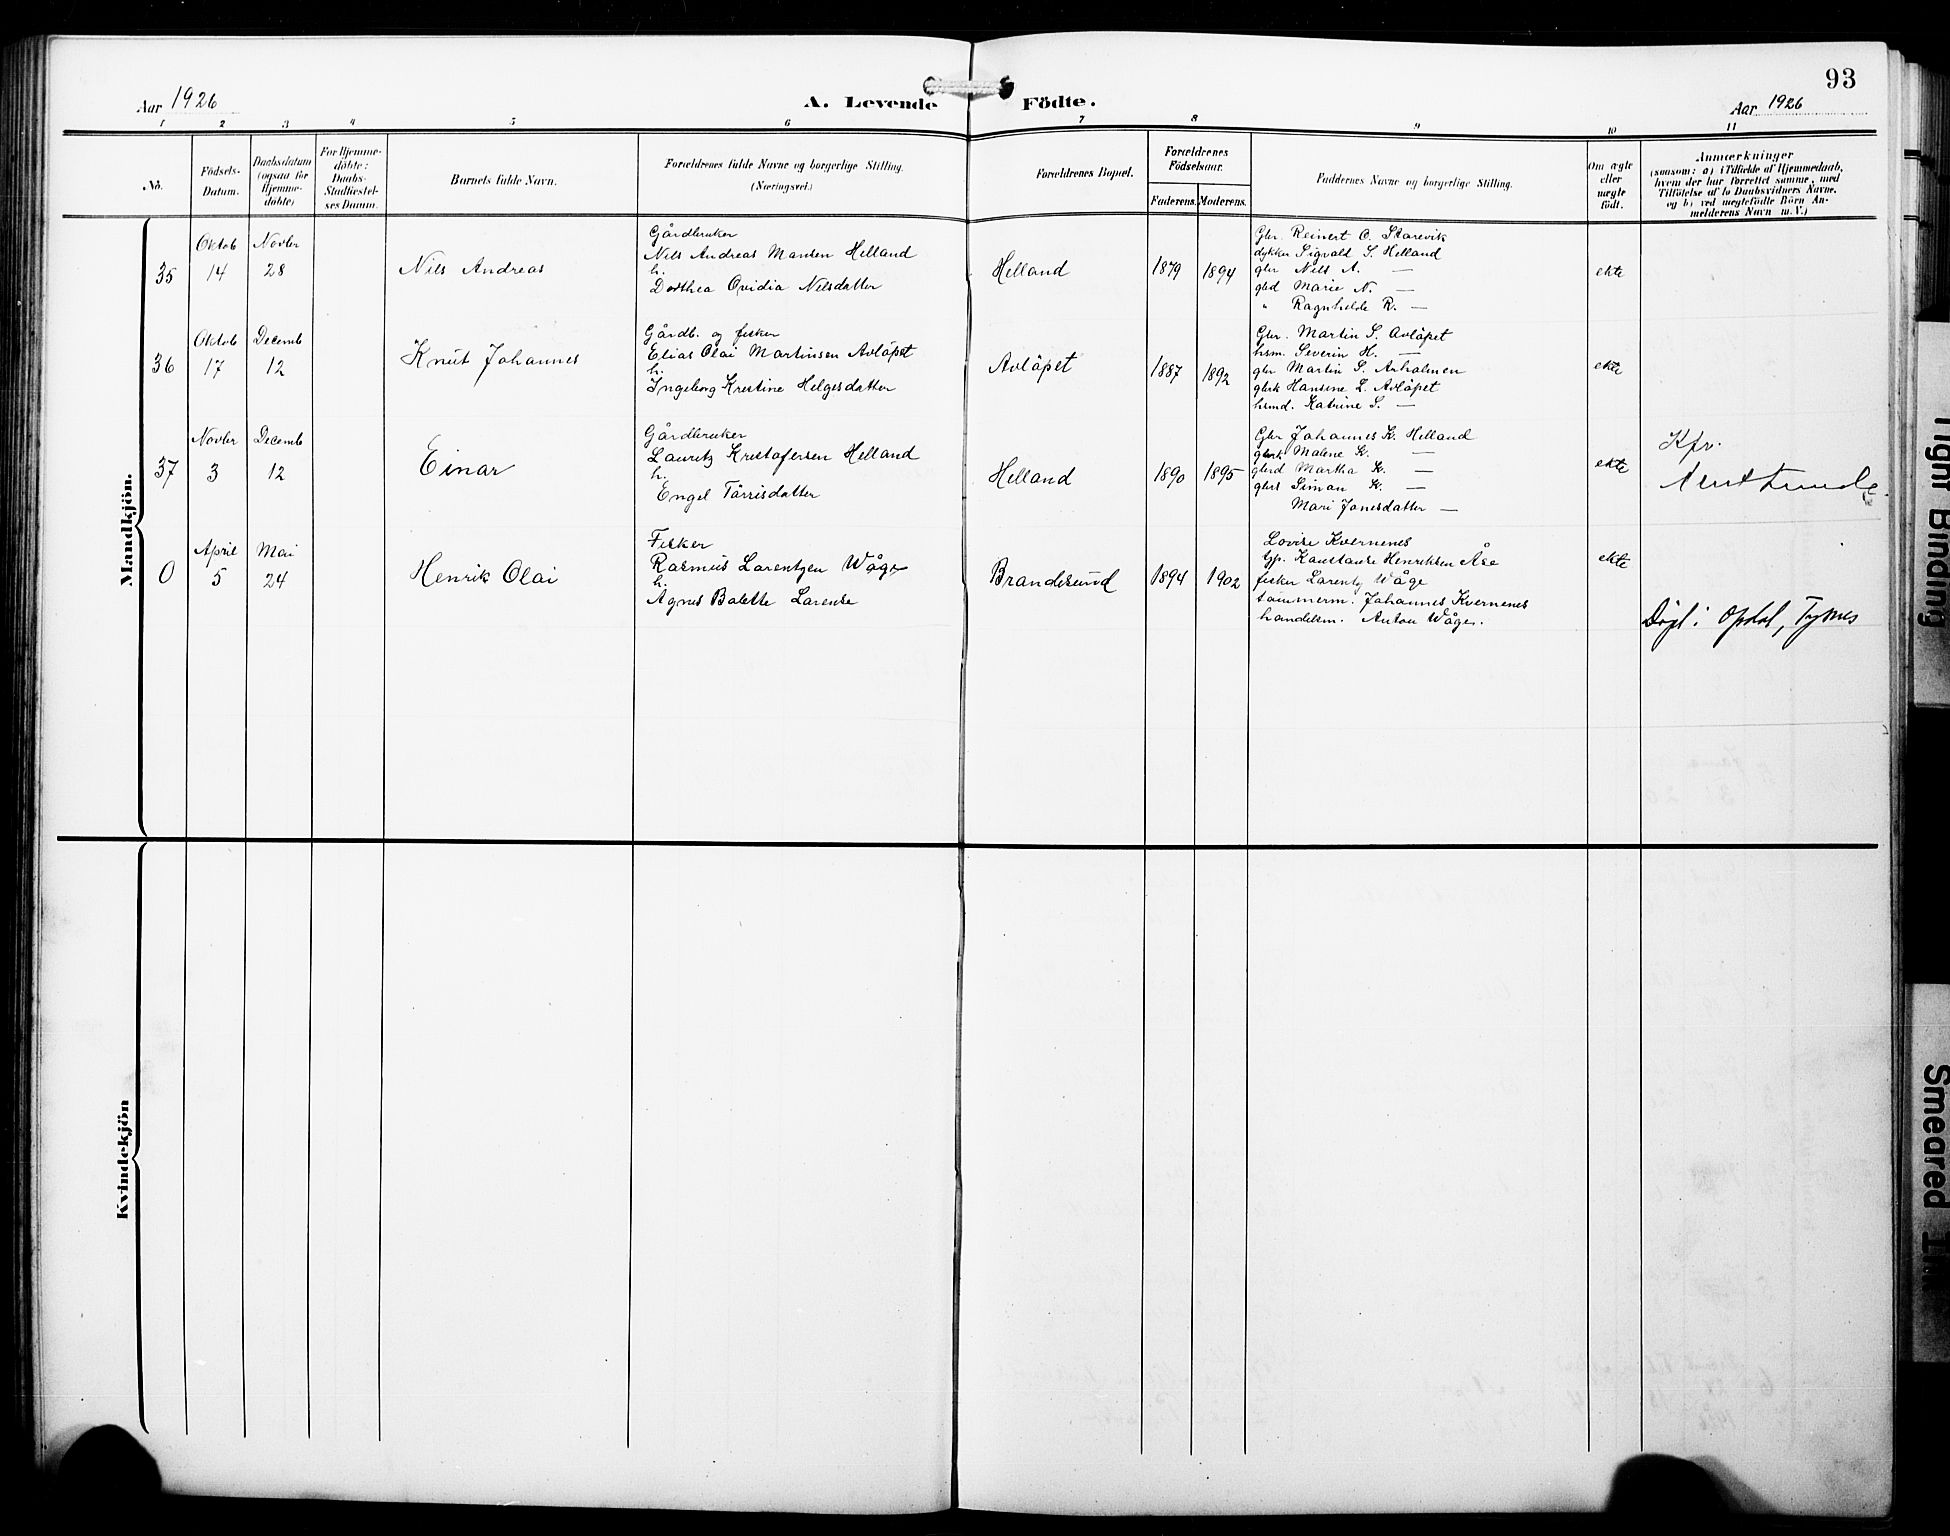 93
Aar 1926
A. Levende Födte.
Aar 1926
1 2 3 4 5 6 7 8 9 10 11
No.
Födsels-
Datum.
Daabsdatum
(ogsaa for
Hjemme-
döbte)
For Hjemme-
döbte:
Daabs-
Stadfæstel-
ses Datum.
Barnets fulde Navn.
Forældrenes fulde Navne og borgerlige Stilling.
(Næringsvei.)
Forældrenes Bopæl.
Forældrenes
Födselsaar.
Faderens. Moderens.
Faddernes Navne og borgerlige Stilling.
Om ægte
eller
uægte
födt.
Anmærkninger
(saasom: a) i Tilfælde af Hjemmedaab,
hvem der har forrettet samme, med
Tilföielse af to Daabsvidners Navne,
og b) ved uægtefödte Börn An-
melderens Navn m. V.)
Mandkjön.
35
Oktob
14
Novbr
28
Nils Andreas
Gårdbruker
Nils Andreas Monsen Helland
h.
Dorthea Ovidia Nilsdatter
Helland
1879
1894
Gbr. Reinert O. Storevik
dykker Sigvald S. Helland
gbr Nils A. —
gbd Marie N. —
" Ragnhilde R. —
ekte
36
Oktob
17
Decemb
12
Knut Johannes
Gårdb. og fisker
Elias Olai Martinsen Avlöpet
h.
Ingeborg Kristine Helgesdatter
Avlöpet
1887
1892
Gbr. Martin S. Avlöpet
hsm. Severin H. —
gbr Martin S. Arholmen
gbrk Hansine L. Avlöpet
hsmd. Katrine S. —
ekte
37
Novbr
3
Decemb
12
Einar
Gårdbruker
Lauritz Kristofersen Helland
h.
Engel Törrisdatter
Helland
1890
1895
Gbr Johannes K. Helland
gbrk Malene K. —
gbrd Martha K. —
gbrs Simon K. —
Mari Jonesdatter —
ekte
Kfr.
0
April
5
Mai
24
Henrik Olai
Fisker
Rasmus Larentzen Wåge
h.
Agnes Balette Larense
Brandesund
1894
1902
Lovise Kvernenes
Gp. Konstanse Henriksen Åse
fisker Larentz Wåge
tömmerm. Johannes Kvernenes
handelsm. Anton Wåge.
ekte
Döpt i Opdal, Tysnes
Kvindekjön
Tight Binding
Smeared Ink